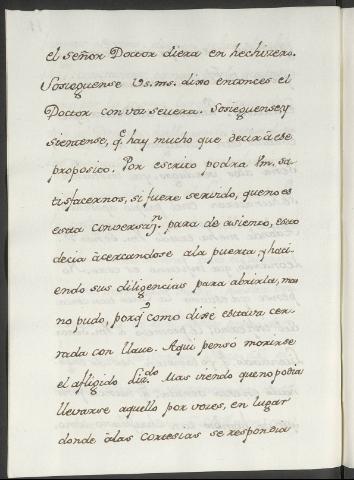 el señor Doctor diera en hechizero.
Sosieguense Vs. ms. dixo entonces el
Doctor con voz severa. Sosieguense, y
sientense, q̃ hay mucho que decir à ese
proposito. Por escrito podrà Vm. sa-
tisfacernos, si fuere servido, que no es
esta conversaⁿ. para de asiento, esto
decia acercandose a la puerta y haci-
endo sus diligencias para abrirla, mas
no pudo, porq̃ como dixe estava cer-
rada con llave. Aqui pensó morirse
el afligido Liz.do Mas viendo que no podia
llevarse aquello por voces, en lugar
donde à las cortesias se respondia